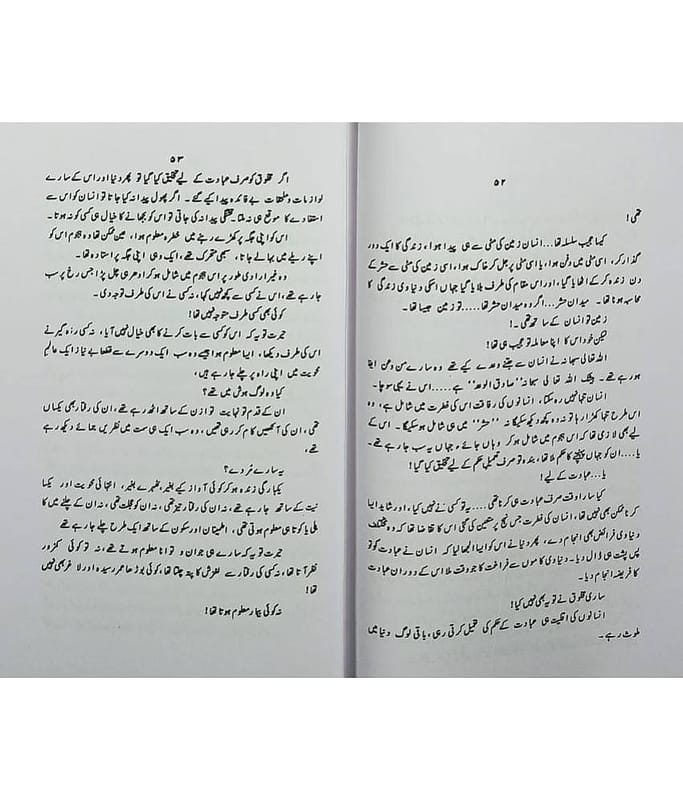 ۵۲
تھی!
کیسا عجیب سلسلہ تھا... انسان زمین کی مٹی سے ہی پیدا ہوا، زندگی کا ایک دور
گذار کر، اسی مٹی میں دفن ہوا، یا اسی مٹی پر جل کر خاک ہوا، اسی زمین کی مٹی سے حشر کے
دن زندہ کر کے اٹھایا گیا، اور اس مقام کی طرف بلایا گیا جہاں اسکی دنیاوی زندگی کا
محاسبہ ہونا تھا۔ میدان حشر... اگر وہ میدان حشر تھا... تو زمین جیسا تھا۔
زمین تو انسان کے ساتھ تھی۔!
لیکن خود اس کا اپنا معاملہ تو عجیب ہی تھا!
اللہ تعالی سبحانہ نے انسان سے جتنے وعدے کیے تھے وہ سارے من و عن ایفا
ہو رہے تھے۔ بیشک اللہ تعالی سبحانہ "صادق الوعد" ہے.....اس نے یہی سوچا۔
انسان تنہا نہیں رہ سکتا، انسانوں کی رفاقت اس کی فطرت میں شامل ہے، وہ
اس طرح تنہا کھڑا رہا تو نہ وہ کچھ دیکھ سکیگا نہ "حشر" میں ہی شامل ہو سکیگا۔ اس کے
لیے بھی لازمی تھا کہ اس ہجوم میں شامل ہو کر وہاں جائے جہاں یہ سب جا رہے تھے۔
یا.....ان کو جہاں پہنچنے کا حکم ملا تھا، وہ تو صرف تعمیل حکم کے لیے تخلیق کیا گیا!
یا... عبادت کے لیے!
کیا سارا وقت صرف عبادت ہی کرنا تھی....یہ تو کسی نے نہیں کیا، اور شاید ایسا
کرنا ممکن بھی نہیں تھا، انسان کی فطرت جس نہج پر متعین کی گئی اس کا تقاضا تھا کہ وہ مختلف
دنیاوی فرائض بھی انجام دے، پھر دنیا نے اس کو ایسا الجھا لیا کہ انسان نے عبادت کو تو
پس پشت ہی ڈال دیا۔ دنیاوی کاموں سے فراغت کا جو وقت ملا اس کے دوران عبادت
کا فریضہ انجام دیا۔
ساری مخلوق نے تو یہ بھی نہیں کیا!
انسانوں کی اقلیت ہی عبادت کے حکم کی تعمیل کرتی رہی، باقی لوگ دنیا میں
ملوث رہے۔
۵۳
اگر مخلوق کو صرف عبادت کے لیے تخلیق کیا گیا تو پھر دنیا اور اس کے سارے
لوازمات و ملحقات بے فائدہ پیدا کیے گئے۔ اگر پھول پیدا نہ کیا جاتا تو انسان کو اس سے
استفادے کا موقع ہی نہ ملتا۔ تشنگی پیدا نہ کی جاتی تو اس کو بجھانے کا خیال ہی کسی کو نہ ہوتا۔
اس کو اپنی جگہ پر کھڑے رہنے میں خطرہ معلوم ہوا، عین ممکن تھا وہ ہجوم اس کو
اپنے ریلے میں بہا لے جاتا، سبھی متحرک تھے، ایک وہی اپنی جگہ پر استادہ تھا۔
وہ غیر ارادی طور پر اس ہجوم میں شامل ہو کر ادھر ہی چل پڑا جس رخ پر سب
جا رہے تھے، اس نے کسی سے کچھ نہیں کہا، نہ کسی نے اس کی طرف توجہ دی۔
کوئی بھی کسی طرف متوجہ نہیں تھا!
حیرت تو یہ کہ اس کو کسی سے بات کرنے کا بھی خیال نہیں آیا، نہ کسی رہ گیر نے
اس کی طرف دیکھا، ایسا معلوم ہوا جیسے وہ سب ایک دوسرے سے قطعا بے نیاز ایک عالم
محویت میں اپنی راہ پر چلے جا رہے ہیں،
کیا وہ لوگ ہوش میں تھے؟
ان کے قدم تو نہایت توازن کے ساتھ اٹھ رہے تھے، ان کی رفتار بھی یکساں
تھی، ان کی آنکھیں کام کر رہی تھیں، وہ سب ایک ہی سمت میں نظریں جمائے دیکھ رہے
تھے،
یہ سارے مردے؟
یکبارگی زندہ ہو کر کوئی آواز کیے بغیر، ٹھہرے بغیر، انتہائی محویت اور یکسا
نیت کے ساتھ جا رہے تھے، نہ ان کی رفتار تیز تھی، نہ ان کو عجلت تھی، نہ ان کے چلنے میں کا
ہلی یا کوتاہی ہوتی تھی، اطمینان اور سکون کے ساتھ ایک طرح چلے جا رہے تھے
حیرت تو یہ کہ سارے ہی جوان و توانا معلوم ہوتے تھے، نہ تو کوئی کمزور
نظر آتا تھا، نہ کسی کی رفتار سے لغزش کا پتہ چلتا تھا، کوئی بوڑھا عمر رسیدہ اور لاغر بھی نہیں
تھا!
نہ کوئی بیمار معلوم ہوتا تھا!